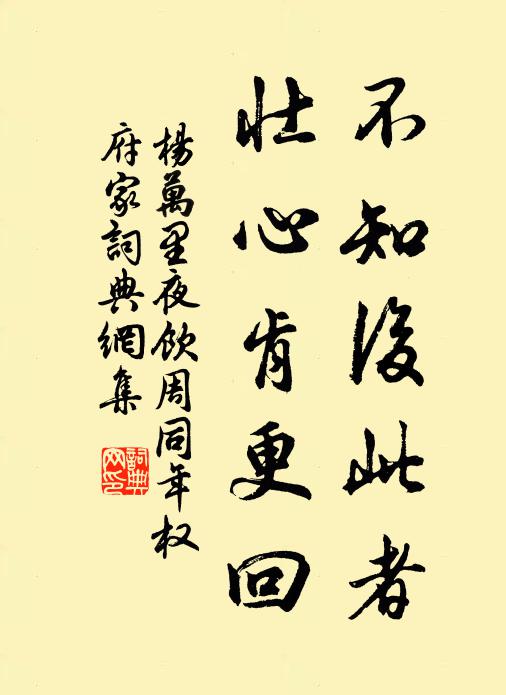 不知後此者
壯心肯更回
楊萬里夜飲周同年权
府家詞典網集
詞典
网印